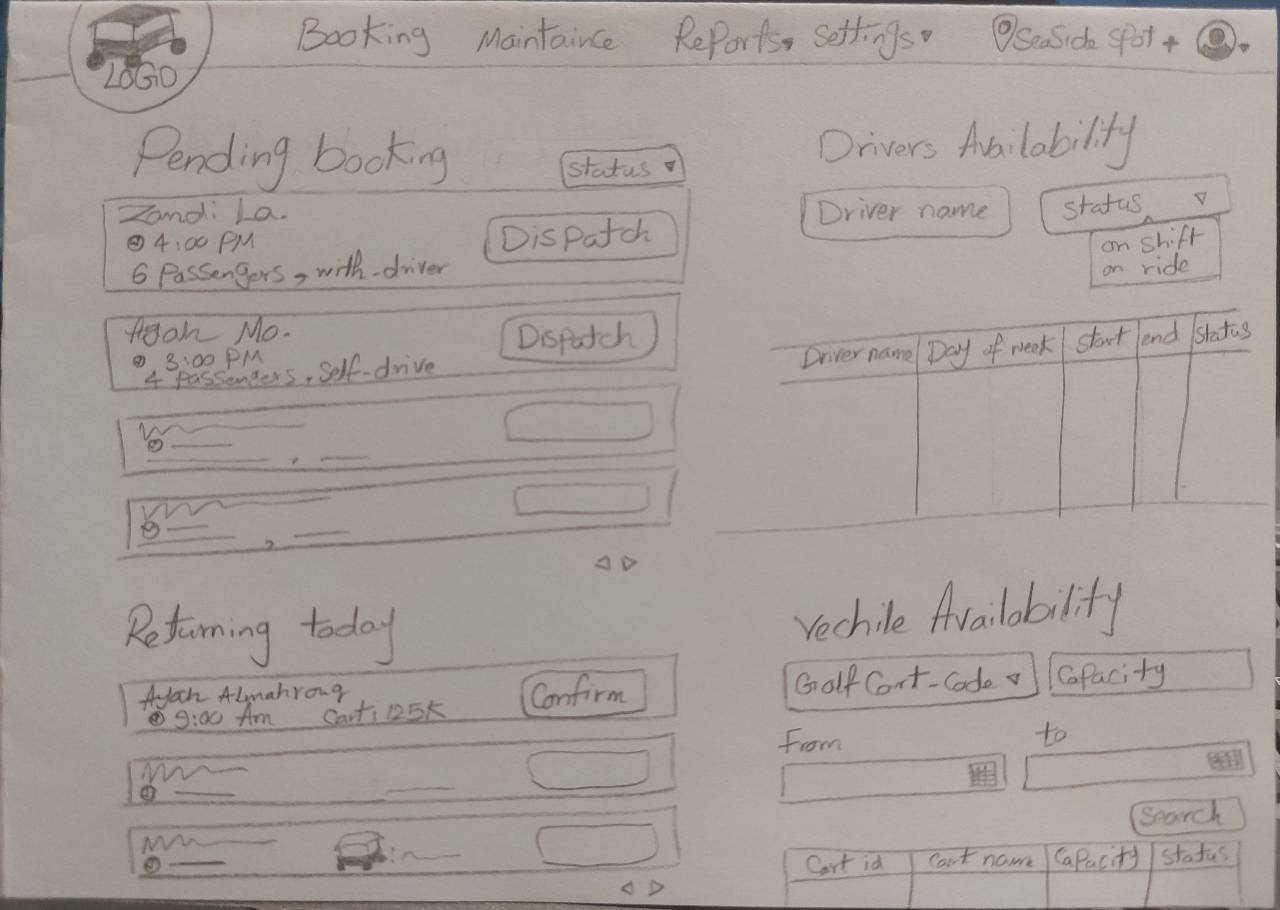 LOGO
Booking Maintaince Reports Settings Seaside spot
Pending booking
Status
Zandi La.
4:00 PM
6 Passengers, with-driver
Dispatch
Ayah Mo.
3:00 PM
4 passengers, self-drive
Dispatch
Returning today
Ayah Almahroug
9:00 Am Cart: 125K
Confirm
Drivers Availability
Driver name
Status
on shift
on ride
Driver name Day of week start end Status
Vechile Availability
Golf Cart-Code Capacity
From to
Search
Cart id Cart name Capacity Status